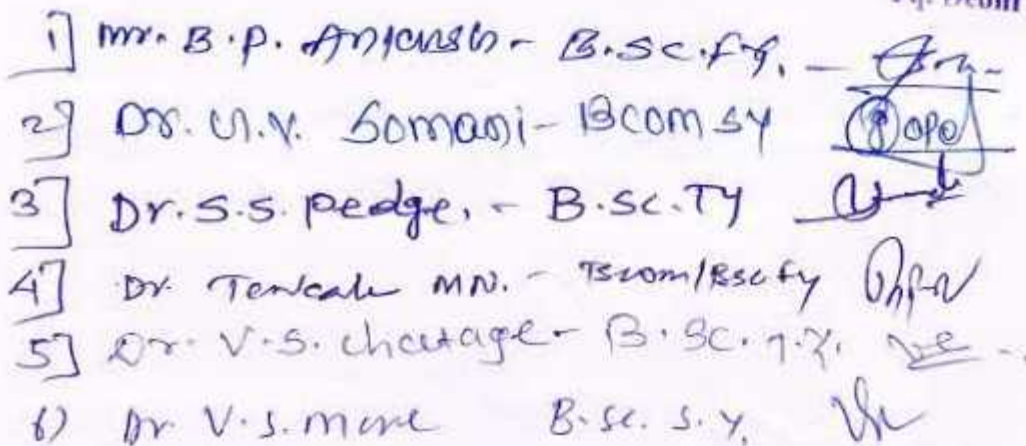 1] Mr. B.P. - B.Sc. F.Y. -
2] Dr. U.V. Somani - BCOM SY
3] Dr. S.S. Pedge. - B.Sc. TY
4] Dr. Tenkale MN. - Bcom/Bsc fy
5] Dr. V.S. - B.Sc.
6) Dr. V.S. More B.Sc. S.Y.